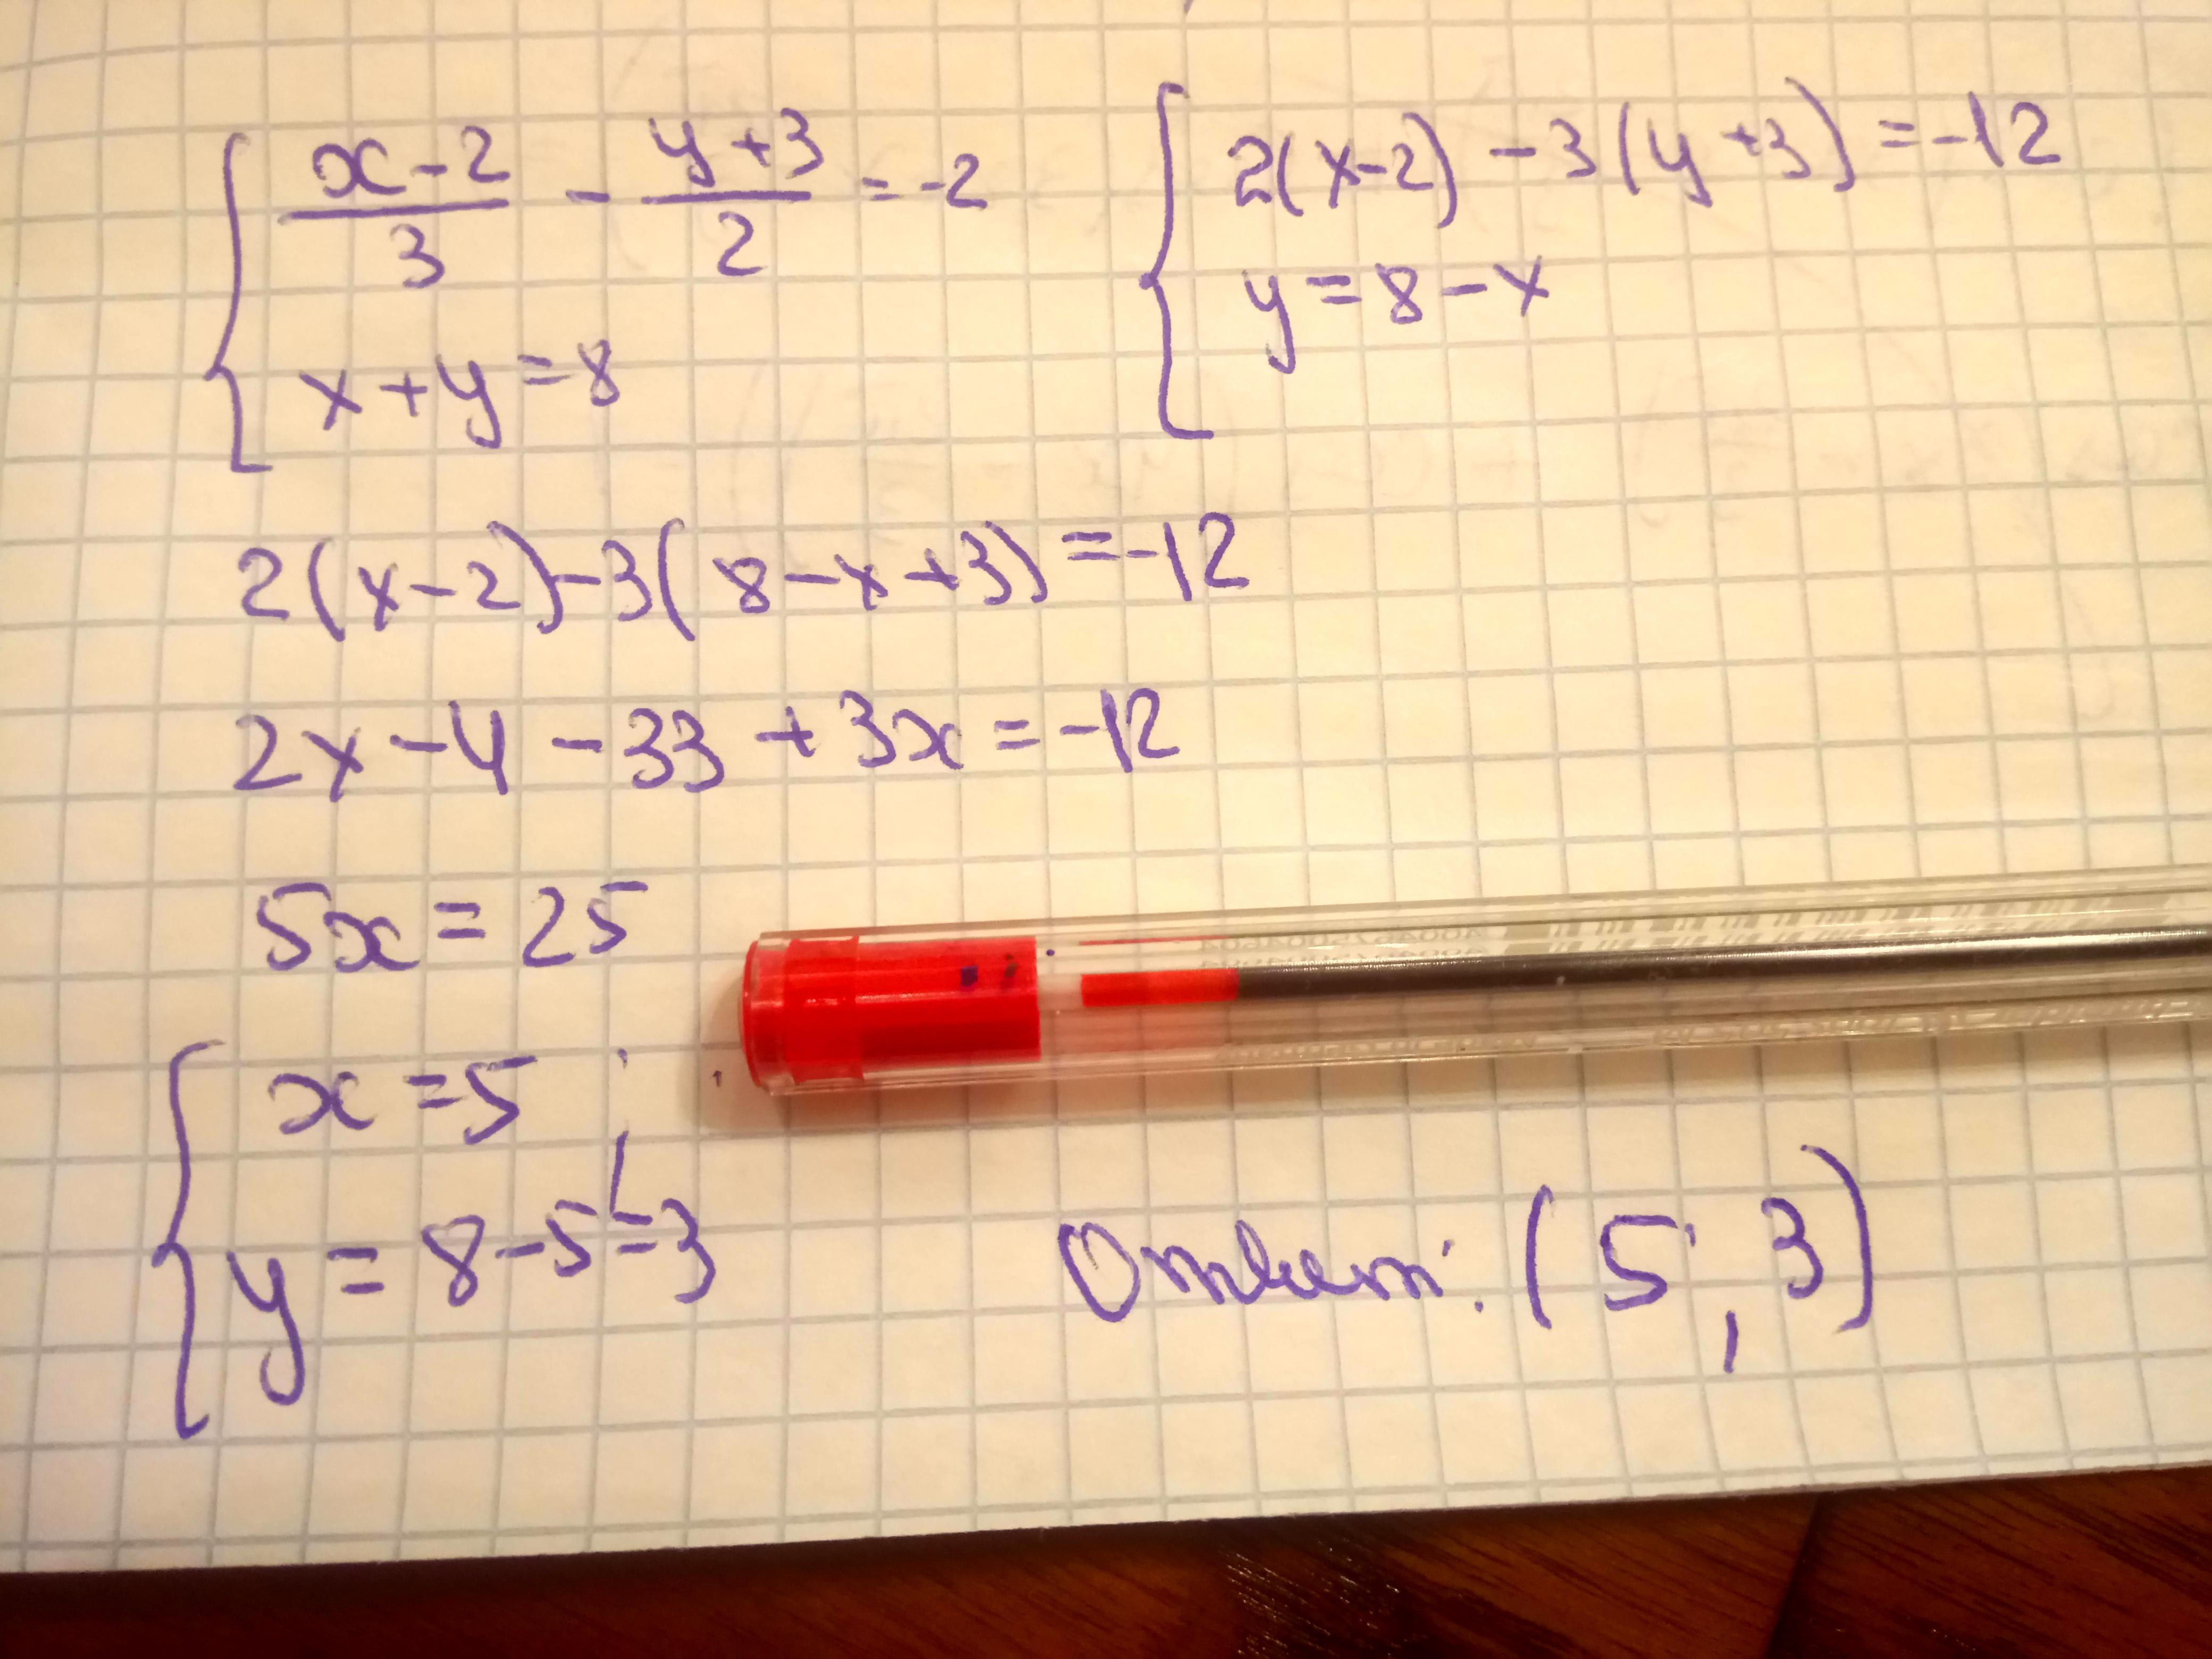 { (x-2)/3 - (y+3)/2 = -2
x+y=8
{ 2(x-2)-3(y+3)=-12
y=8-x
2(x-2)-3(8-x+3)=-12
2x-4-33+3x=-12
5x=25
{ x=5;
y=8-5=3
Ответ: (5;3)